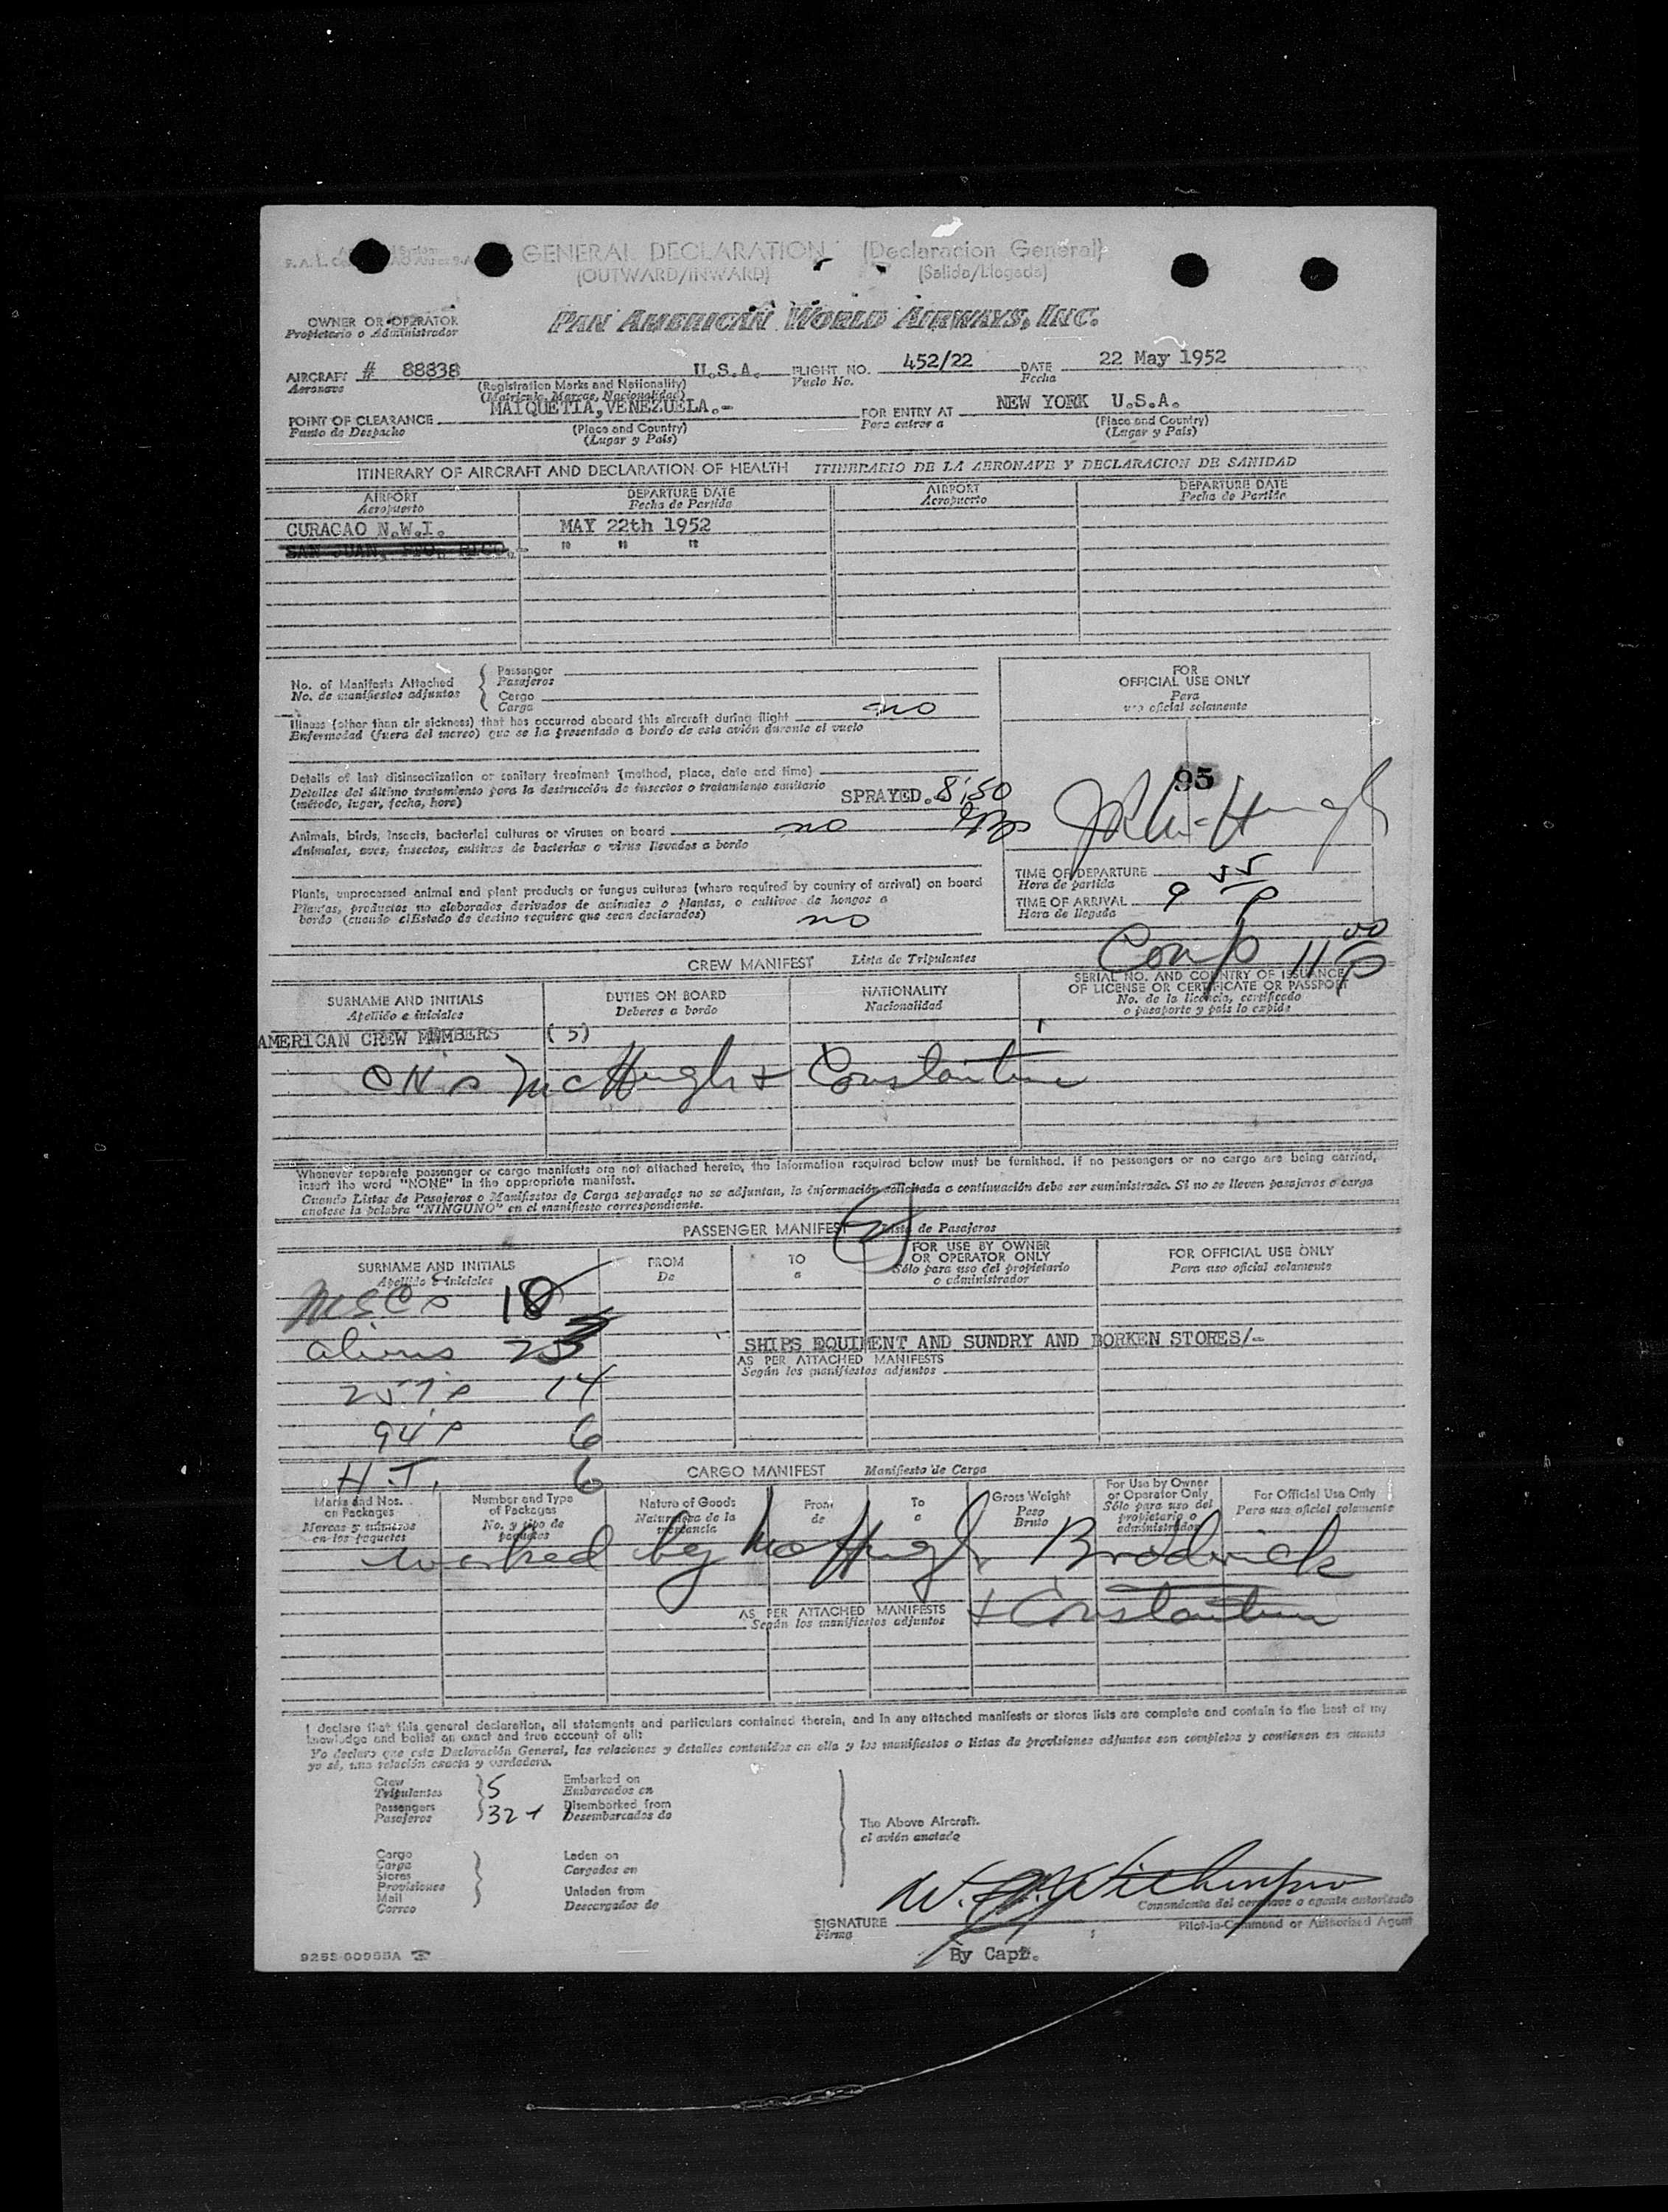 GENERAL DECLARATION (Declaracion General)
(OUTWARD/INWARD) (Salida/Llegada)
OWNER OR OPERATOR PAN AMERICAN WORLD AIRWAYS, INC.
Propietario o Administrador
AIRCRAFT # 88838 U.S.A. FLIGHT NO. 452/22 DATE 22 May 1952
Aeronave (Registration Marks and Nationality) Vuelo No. Fecha
(Matricula, Marcas, Nacionalidad)
POINT OF CLEARANCE MAIQUETIA, VENEZUELA.- FOR ENTRY AT NEW YORK U.S.A.
Punto de Despacho (Place and Country) Para entrar a (Place and Country)
(Lugar y País) (Lugar y País)
ITINERARY OF AIRCRAFT AND DECLARATION OF HEALTH ITINERARIO DE LA AERONAVE Y DECLARACION DE SANIDAD
AIRPORT DEPARTURE DATE AIRPORT DEPARTURE DATE
Aeropuerto Fecha de Partida Aeropuerto Fecha de Partida
CURACAO N.W.I. MAY 22th 1952
SAN JUAN, PTO. RICO.- " " "
No. of Manifests Attached Passenger
No. de manifiestos adjuntos Pasajeros
Cargo
Carga
FOR
OFFICIAL USE ONLY
Para
uso oficial solamente
Illness (other than air sickness) that has occurred aboard this aircraft during flight no
Enfermedad (fuera del mareo) que se ha presentado a bordo de este avión durante el vuelo
95
Details of last disinsectization or sanitary treatment (method, place, date and time)
Detalles del último tratamiento para la destrucción de insectos o tratamiento sanitario SPRAYED. 8:50
(método, lugar, fecha, hora)
Animals, birds, insects, bacterial cultures or viruses on board no
Animales, aves, insectos, cultivos de bacterias o virus llevados a bordo
Plants, unprocessed animal and plant products or fungus cultures (where required by country of arrival) on board
Plantas, productos no elaborados derivados de animales o plantas, o cultivos de hongos a
bordo (cuando el Estado de destino requiere que sean declarados) no
TIME OF DEPARTURE
Hora de partida
TIME OF ARRIVAL 9 55 P
Hora de llegada
Comp 11 00 P
CREW MANIFEST Lista de Tripulantes
SURNAME AND INITIALS DUTIES ON BOARD NATIONALITY SERIAL NO. AND COUNTRY OF ISSUANCE
Apellido e iniciales Deberes a bordo Nacionalidad OF LICENSE OR CERTIFICATE OR PASSPORT
No. de la licencia, certificado
o pasaporte y país lo expide
AMERICAN CREW MEMBERS (5)
McHugh + Constantine
Whenever separate passenger or cargo manifests are not attached hereto, the information required below must be furnished. If no passengers or no cargo are being carried,
insert the word "NONE" in the appropriate manifest.
Cuando Listas de Pasajeros o Manifiestos de Carga separados no se adjuntan, la información solicitada a continuación debe ser suministrada. Si no se lleven pasajeros o carga
anotese la palabra "NINGUNO" en el manifiesto correspondiente.
PASSENGER MANIFEST Lista de Pasajeros
SURNAME AND INITIALS FROM TO FOR USE BY OWNER FOR OFFICIAL USE ONLY
Apellido e iniciales De a OR OPERATOR ONLY Para uso oficial solamente
Sólo para uso del propietario
o administrador
18
aliens
SHIPS EQUIMENT AND SUNDRY AND BORKEN STORES/-
AS PER ATTACHED MANIFESTS
Según los manifiestos adjuntos
257's 14
94's 6
H.T. 6
CARGO MANIFEST Manifiesto de Carga
Marks and Nos. on Packages Number and Type of Packages Nature of Goods From To Gross Weight For Use by Owner or Operator Only For Official Use Only
Marcas y números en los paquetes No. y tipo de paquetes Naturaleza de la mercancía de a Peso Bruto Sólo para uso del propietario o administrador Para uso oficial solamente
worked by McHugh, Brodwick
+ Constantine
AS PER ATTACHED MANIFESTS
Según los manifiestos adjuntos
I declare that this general declaration, all statements and particulars contained therein, and in any attached manifests or stores lists are complete and contain to the best of my
knowledge and belief an exact and true account of all:
Yo declaro que esta Declaración General, las relaciones y detalles contenidos en ella y los manifiestos o listas de provisiones adjuntos son completos y contienen en cuanto
yo sé, una relación exacta y verdadera.
Crew 5 Embarked on
Tripulantes Embarcados en
Passengers 32+ Disembarked from
Pasajeros Desembarcados de
The Above Aircraft.
el avión anotado
Cargo Laden on
Carga Cargados en
Stores
Provisiones Unladen from
Mail Descargados de
Correo
Comandante del aeronave o agente autorizado
SIGNATURE Pilot-in-Command or Authorized Agent
Firma
By Capt.